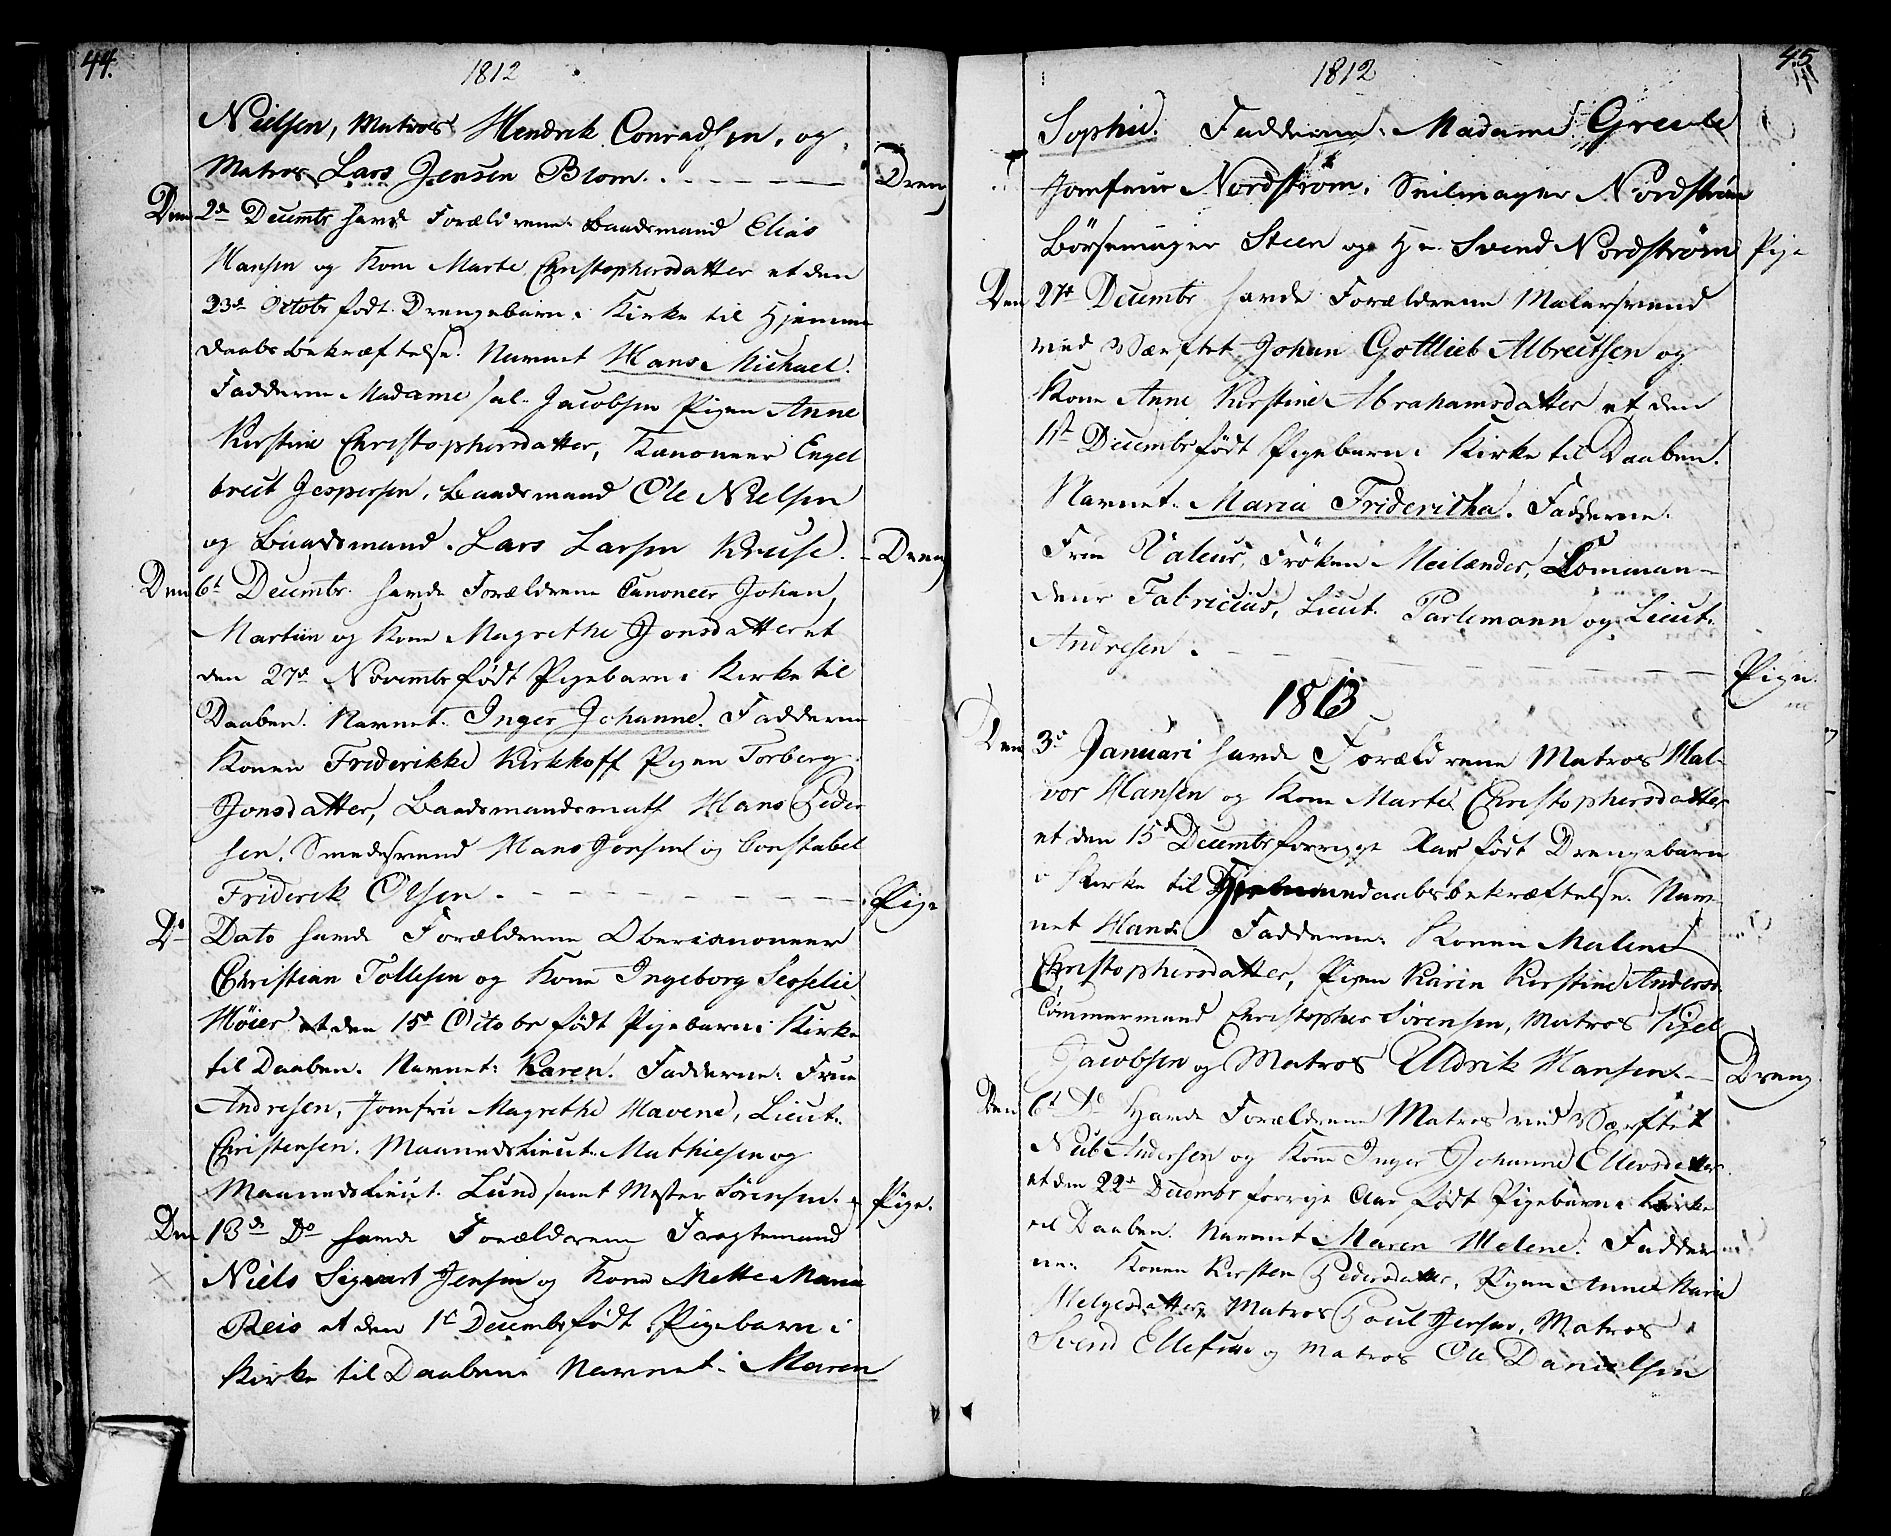 44.
1812
Nielsen, Matros Hendrik Conradsen, og
Matros Lars Jensen Blom. Dreng
Den 2d Decembr havde Forældrene Baadsmand Elias
Hansen og Kone Marte Christophersdatter et den
23d Octobr født Drengebarn i Kirke til Hjemme
daabs bekræftelse. Navnet Hans Michael.
Fadderne Madame sal. Jacobsen Pigen Anne
Kirstine Christophersdatter, Kanoneer Engel
brect Jespersen, Baadsmand Ole Nielsen
og Baadsmand Lars Larsen Kruse. Dreng
Den 6t Decembr havde Forældrene Canoneer Johan
Martin og Kone Magrethe Jonsdatter et
den 27d Novembr født Pigebarn i Kirke til
Daaben. Navnet Inger Johanne. Fadderne
Konen Friderikke Kirkhoff Pigen Torberg
Jonsdatter, Baadsmandsmath Hans Peder
sen, Smedesvend Hans Jensen og Constabel
Friderik Olsen. Pige
Do Dato havde Forældrene Obercanoneer
Christian Tollesen og Kone Ingeborg Sesselie
Møier et den 15d Octobr født Pigebarn i Kirke
til Daaben. Navnet: Karen. Fadderne: Frue
Andresen, Jomfru Magrethe Havene, Lieut.
Christensen, Maanedslieut. Mathiesen og
Maanedslieut. Lund samt Mester Sørensen. Pige.
Den 13d Do havde Forældrene Fragtemand
Niels Sigvart Jensen og Kone Mette Maria
Reis et den 1t Decembr født Pigebarn i
Kirke til Daaben Navnet. Maren
45
1812
Sophie. Fadderne. Madame Greve
Jomfrue Nordstrøm, Seilmager Nordstrøm
Börsemager Steen og Hr. Svend Nordstrøm Pige
Den 27d Decembr havde Forældrene Malersvend
ved Værftet Johan Gottlieb Albrectsen og
Kone Anne Kirstine Abrahamsdatter et den
11t Decembr født Pigebarn i Kirke til Daaben.
Navnet. Maria Frideritha. Fadderne.
Frue Valeur, Frøken Meilænder, Comman-
deur Fabricius, Lieut. Parlemann og Lieut.
Andresen. Pige.
1813
Den 3d Januari havde Forældrene Matros Hal-
vor Hansen og Kone Marte Christophersdatter
et den 15d Decembr forrige Aar født Drengebarn
i Kirke til Hjemmedaabsbekræftelse. Nav-
net Hans. Fadderne. Konen Malene
Christophersdatter, Pigen Karin Kirstine Andersd.
Tømmermand Christopher Sørensen, Matros Kjel
Jacobsen og Matros Uldrik Hansen. Dreng
Den 6t Do Havde Forældrene Matros ved Værftet
Niels Andersen og Kone Inger Johanne Ellevsdatter
et den 22d Decembr forrige Aar født Pigebarn i Kirke
til Daaben. Navnet Maren Helene. Fadder
ne. Konen Kirsten Pedersdatter, Pigen Anne Marie
Helgesdatter Matros Poul Jensen, Matros
Svend Ellefsen og Matros Ole Danielsen